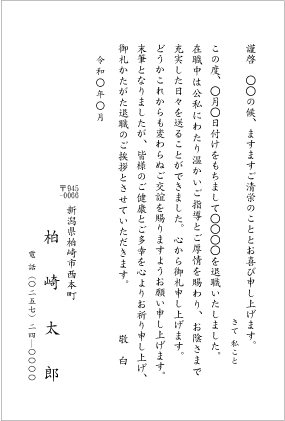 謹啓　〇〇の候、ますますご清栄のこととお喜び申し上げます。
さて 私こと
この度、〇月〇日付けをもちまして〇〇〇〇を退職いたしました。
在職中は公私にわたり温かいご指導とご厚情を賜わり、お陰さまで
充実した日々を送ることができました。心から御礼申し上げます。
どうかこれからも変わらぬご交誼を賜りますようお願い申し上げます。
末筆となりましたが、皆様のご健康とご多幸を心よりお祈り申し上げ、
御礼かたがた退職のご挨拶とさせていただきます。
敬　白
令和〇年〇月
〒945-0066
新潟県柏崎市西本町
柏崎太郎
電話（〇二五七）二四―〇〇〇〇